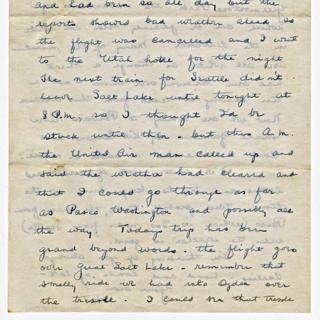 and had been so all day but the
reports showed bad weather ahead so
the flight was cancelled and I went
to the Utah hotel for the night
The next train for Seattle didn't
leave Salt Lake until tonight at
8 P.M. so I thought I'd be
stuck until then - but this A.M.
the United Air man called up and
said the weather had cleared and
that I could go through as far
as Pasco, Washington and possibly all
the way. Today's trip has been
grand beyond words. the flight goes
over Great Salt Lake - remember that
smelly ride we had into Ogden over
the trestle. I could see that trestle